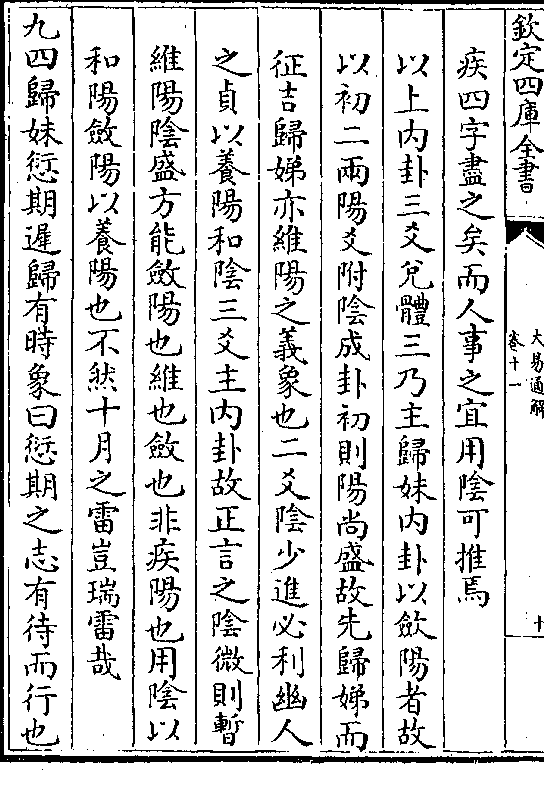 欽定四庫全書
大易通解
卷十一
十
疾四字盡之矣而人事之宜用陰可推焉
以上内卦三爻兌體三乃主歸妹内卦以斂陽者故
以初二兩陽爻附陰成卦初則陽尚盛故先歸娣而
征吉歸娣亦維陽之義象也二爻陰少進必利幽人
之貞以養陽和陰三爻主内卦故正言之陰微則暫
維陽陰盛方能斂陽也維也斂也非疾陽也用陰以
和陽斂陽以養陽也不然十月之雷豈瑞雷哉
九四歸妹愆期遲歸有時象曰愆期之志有待而行也